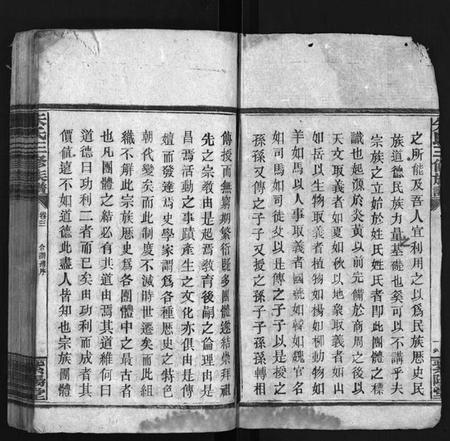 之所能及吾人宜利用之以爲民族歷史民
族道德民族力量基礎也矣可以不講乎夫
宗族之立始於姓氏姓氏者即此團體之標
識也起源於炎黃以前完備於商周之後以
天文取義者如夏如秋以地象取義者如山
如岳以生物取義者植物如楊如柳動物如
羊如馬以人事取義者國號如韓如魏官名
如司馬如司徒女以是傳之子子以是授之
孫孫又傳之子子又授之孫子子孫孫轉相
傳授而無窮期繁衍既多團體遂結崇拜祖
先之宗教由是起焉教育後嗣之倫理由是
昌焉活動之事蹟產生之文化亦俱由是傳
嬗而發達焉史學家謂爲各種歷史之特色
朝代變矣而此制度不滅時世遷矣而此組
織不解此宗族歷史爲各團體中之最古者
也凡團體之結必有其道由焉其道維何曰
道德曰功利二者而已矣由功利而成者其
價值遠不如道德此盡人皆知也宗族團體
卷三
合譜禮序